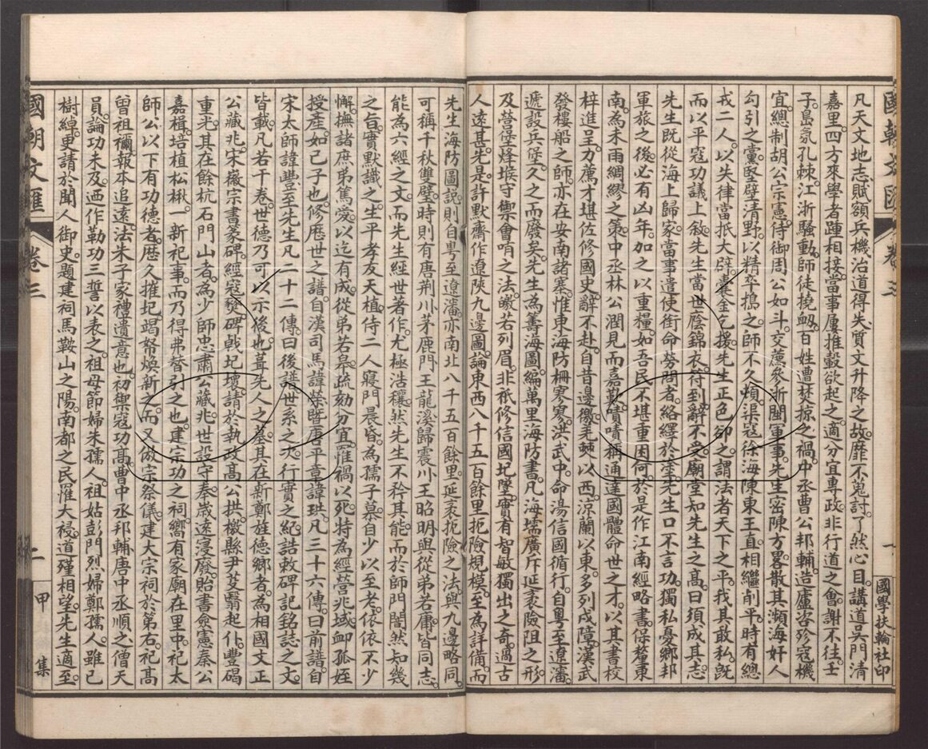 國朝文匯 卷三
一
國學扶輪社印
凡天文地志賦額兵機治道得失質文升降之故靡不蒐討了然心目講道吳門清
嘉里四方來學者踵相接當事屢推轂欲起之適分宜專政非行道之會謝不往壬
子島氛孔棘江浙騷動師徒撓衂百姓遭焚掠之禍中丞曹公邦輔造廬咨殄寇機
宜總制胡公宗憲侍御周公如斗交薦參浙閫軍事先生密陳方畧散其瀕海奸人
勾引之黨堅壁清野以精卒搗之師不久頓渠寇徐海陳東王直相繼削平時有總
戎二人以失律當抵大辟
而以平寇功議上敘先生當世廕錦衣符到辭不受廟堂知先生之高曰須成其志
先生既從海上歸家當事遣使銜命勞問者絡繹於塗先生口不言功獨私憂鄉邦
軍旅之後必有凶年加之以重糧如吾民不堪重困何於是作江南經略書保釐東
南為未雨綢繆之策中丞林公潤見而嘉歎嘖嘖稱通達國體命世之才以其書校
梓進呈力薦才堪佐修國史辭不赴自昔邊徼先陜以西涼蘭以東多列戍障漢武
發樓船之師亦在安南諸寨惟東海防柵寥寥洪武中命湯信國循行自粵至遼瀋
遞設兵堡久之而廢矣先生為籌海圖編萬里海防書凡海壖廣斥延袤險阻之形
及營堡烽堠守禦會哨之法瞭若列眉非祇修信國圮墜實有智敏獨出之奇過古
人遠甚先是許默齋作遼陝九邊圖論東西八千五百餘里扼險規模至為詳備而
先生海防圖說則自粵至遼瀋亦南北八千五百餘里延袤扼險之法與九邊略同
可稱千秋雙璧時則有唐荊川茅鹿門王龍溪歸震川王昭明與從弟若庸皆同志
能為六經之文而先生經世著作尤極浩穰然先生不矜其能而於師門闇然知幾
之旨實默識之生平孝友天植侍二人寢門晨昏為孺子慕自少以至老依依不少
懈撫諸庶弟篤愛以迄有成從弟若皋疏劾分宜惟禍以死特為經營兆域卹孤姪
授產如己子也修歷世之譜自漢司馬諱榮暨唐平章諱珙凡三十六傳曰前譜自
宋太師諱豐至先生凡二十二傳曰後譜世系之次行實之紀詁敕碑記銘誌之文
皆載凡若干卷世德乃可以示後也葺先人之墓其在新鄭旌德鄉者為相國文正
公藏兆宋徽宗書篆碑經寇燹碑戟圮壞請於執政高公拱檄縣尹芟翳起仆豐碣
重光其在餘杭石門山者為少師忠肅公藏兆世設守奉歲遠寖廢貽書僉憲秦公
嘉楫培植松楸一新祀事而乃得弗替引之也建宗功之祠嚮有家廟在里中祀太
師公以下有功德者歷久摧圮竭帑煥新之而又倣宗祭儀建大宗祠於第右祀高
曾祖禰報本追遠法朱子家禮遺意也初禦寇功高曹中丞邦輔唐中丞順之僧天
員論功未及迺作勒功三誓以表之祖母節婦朱孺人祖姑彭門烈婦鄭孺人雖已
樹綽更請於聞人御史題建祠馬鞍山之陽南都之民惟大祲道殣相望先生適至
國朝文匯 卷三
二
甲集